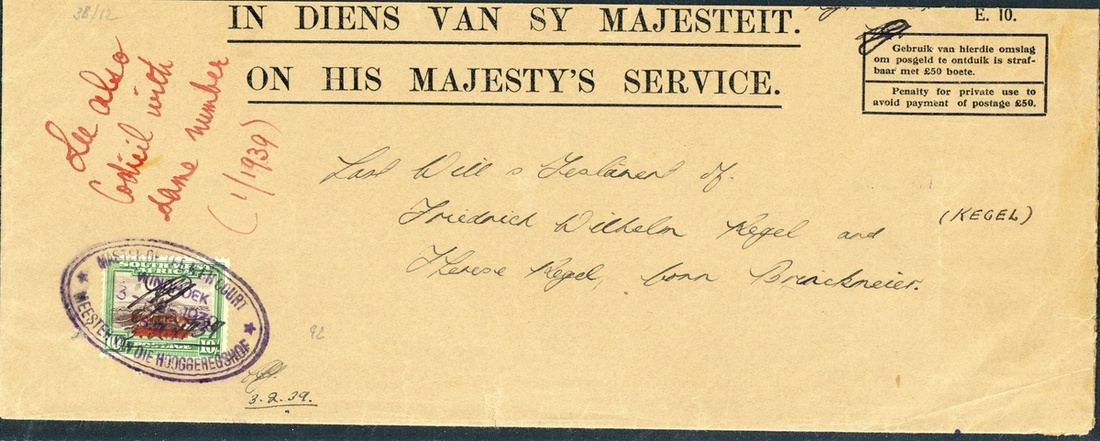 38/12
IN DIENS VAN SY MAJESTEIT.
ON HIS MAJESTY'S SERVICE.
E. 10.
Gebruik van hierdie omslag
om posgeld te ontduik is straf-
baar met £50 boete.
Penalty for private use to
avoid payment of postage £50.
See also
Codicil with
same number
(1/1939)
Last Will & Testament of.
Friedrich Wilhelm Kegel and
(KEGEL)
Therese Kegel, born Brinckmeier.
MASTER OF THE HIGH COURT
WINDHOEK
MEESTER VAN DIE HOOGGEREGSHOF
SOUTH
POSTAGE
92
3.2.39.